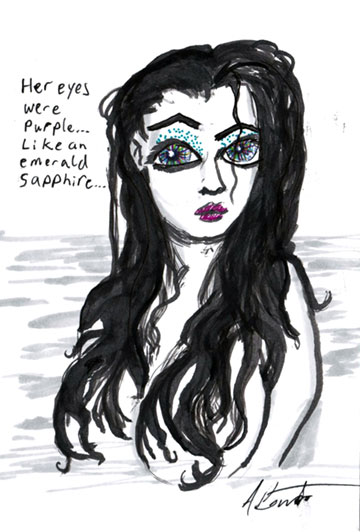 Her eyes
were
purple...
Like an
emerald
sapphire...